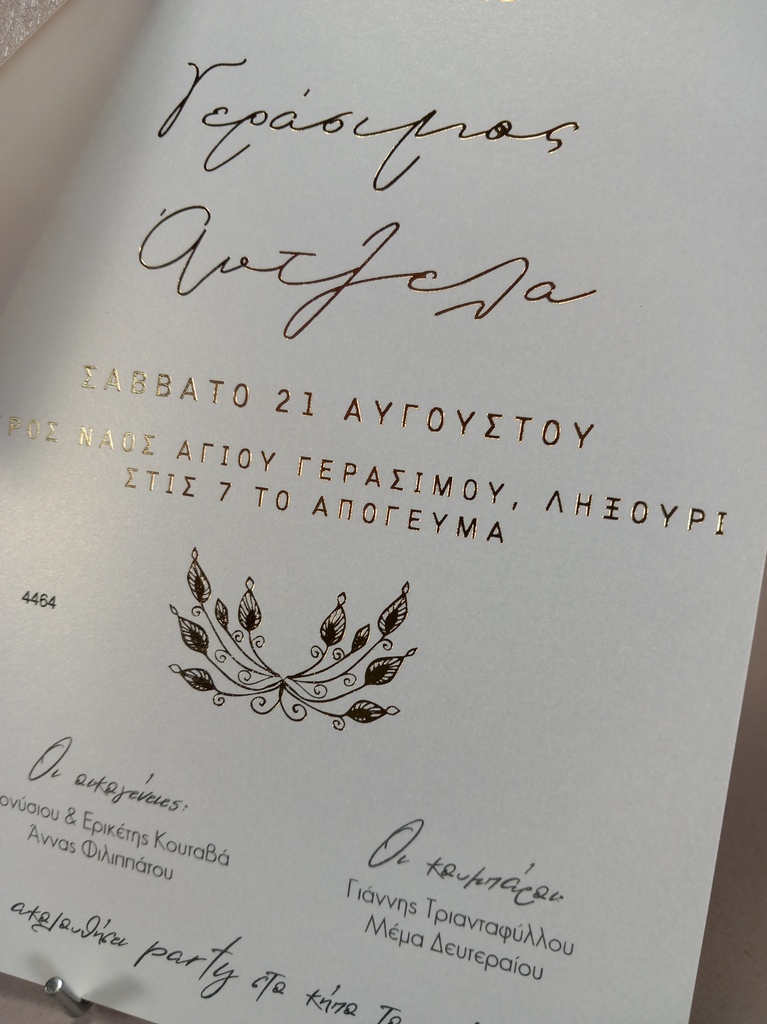 Γεράσιμος
Άντζελα
ΣΑΒΒΑΤΟ 21 ΑΥΓΟΥΣΤΟΥ
ΡΟΣ ΝΑΟΣ ΑΓΙΟΥ ΓΕΡΑΣΙΜΟΥ, ΛΗΞΟΥΡΙ
ΣΤΙΣ 7 ΤΟ ΑΠΟΓΕΥΜΑ
4464
Οι οικογένειες:
ονύσιου & Ερικέτης Κουταβά
Άννας Φιλιππάτου
Οι κουμπάροι
Γιάννης Τριανταφύλλου
Μέμα Δευτεραίου
ακολουθήσει party στο κήπο